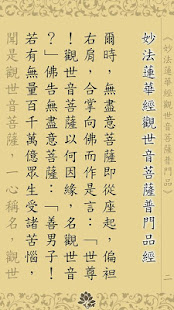 《妙法蓮華經觀世音菩薩普門品》 二
妙法蓮華經觀世音菩薩普門品經
爾時，無盡意菩薩即從座起，偏袒
右肩，合掌向佛而作是言：「世尊
！觀世音菩薩以何因緣，名觀世音
？」佛告無盡意菩薩：「善男子！
若有無量百千萬億眾生受諸苦惱，
聞是觀世音菩薩，一心稱名，觀世